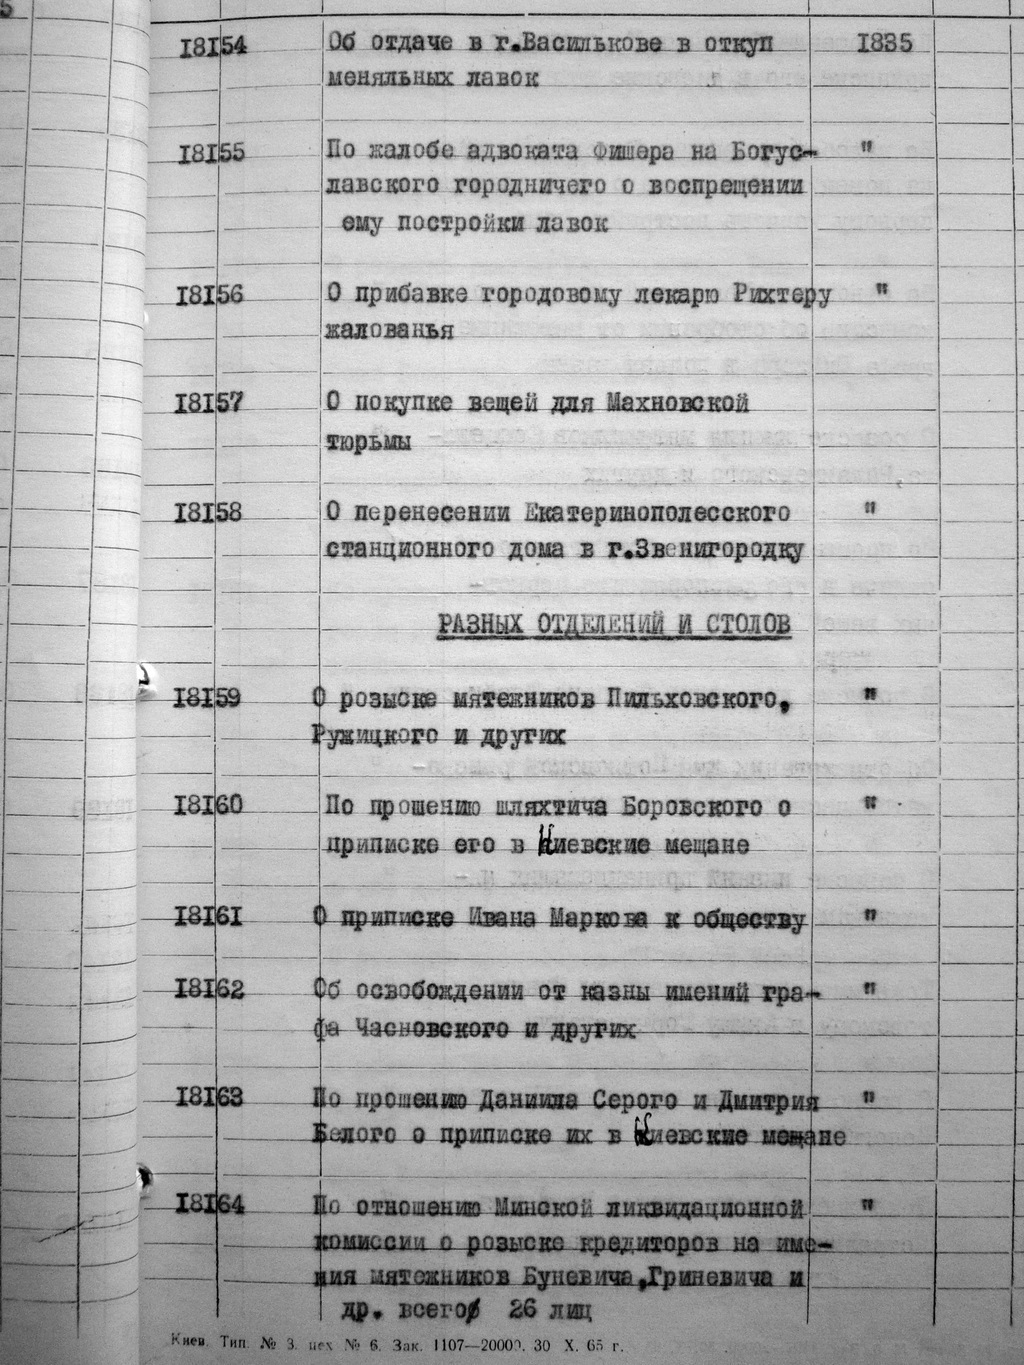 18154 Об отдаче в г.Василькове в откуп 1835
меняльных лавок
18155 По жалобе адвоката Фишера на Богус- "
лавского городничего о воспрещении
ему постройки лавок
18156 О прибавке городовому лекарю Рихтеру "
жалованья
18157 О покупке вещей для Махновской
тюрьмы
18158 О перенесении Екатеринополесского "
станционного дома в г.Звенигородку
РАЗНЫХ ОТДЕЛЕНИЙ И СТОЛОВ
18159 О розыске мятежников Пильховского, "
Ружицкого и других
18160 По прошению шляхтича Боровского о "
приписке его в Киевские мещане
18161 О приписке Ивана Маркова к обществу "
18162 Об освобождении от казны имений гра- "
фа Часновского и других
18163 По прошению Даниила Серого и Дмитрия "
Белого о приписке их в Киевские мещане
18164 По отношению Минской ликвидационной "
комиссии о розыске кредиторов на име-
ния мятежников Буневича,Гриневича и
др. всего 26 лиц
Киев. Тип. № 3. цех № 6. Зак. 1107—20000. 30 X. 65 г.